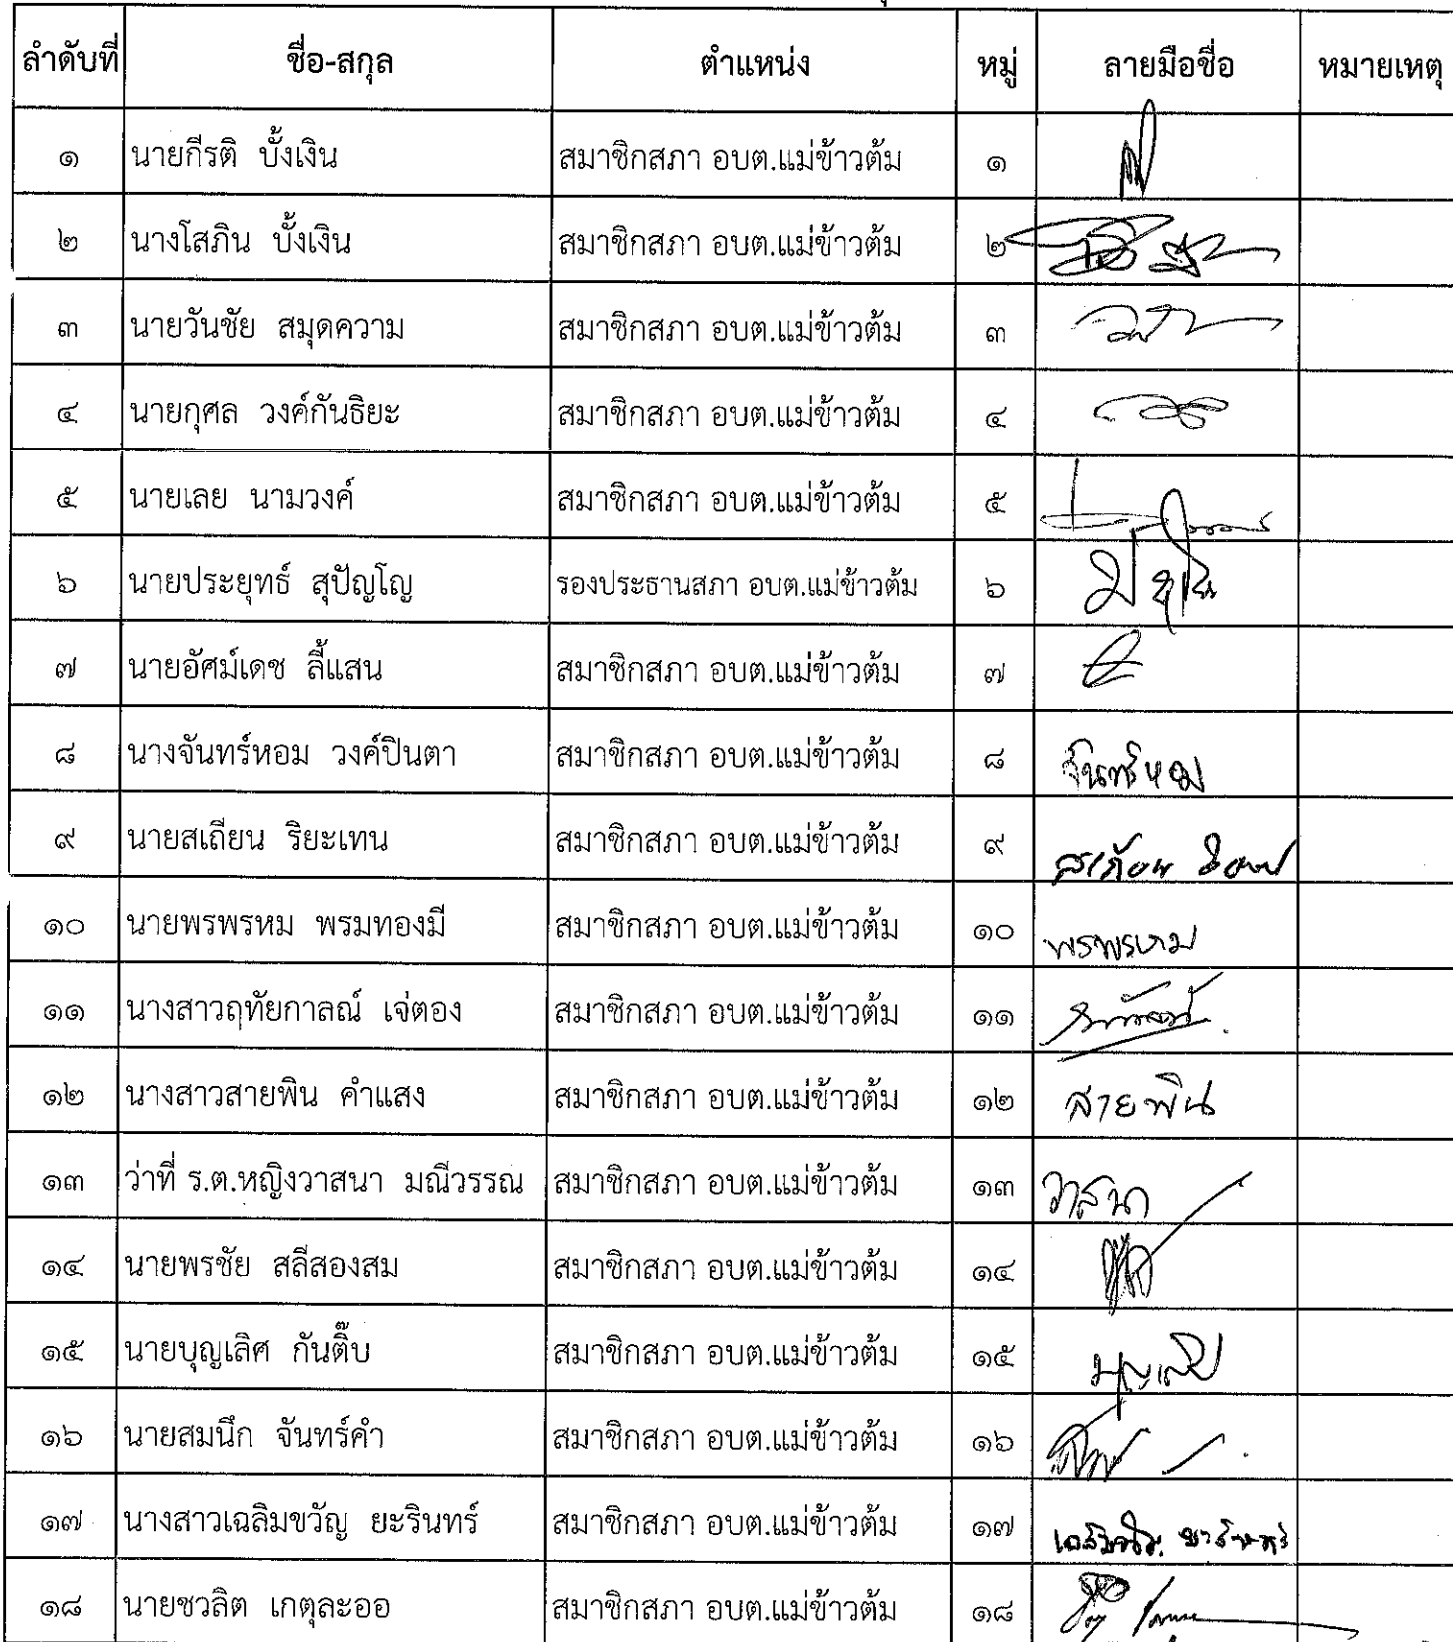 ลำดับที่ ชื่อ-สกุล ตำแหน่ง หมู่ ลายมือชื่อ หมายเหตุ
๑ นายกีรติ บั้งเงิน สมาชิกสภา อบต.แม่ข้าวต้ม ๑
๒ นางโสภิน บั้งเงิน สมาชิกสภา อบต.แม่ข้าวต้ม ๒
๓ นายวันชัย สมุดความ สมาชิกสภา อบต.แม่ข้าวต้ม ๓
๔ นายกุศล วงค์กันธิยะ สมาชิกสภา อบต.แม่ข้าวต้ม ๔
๕ นายเลย นามวงค์ สมาชิกสภา อบต.แม่ข้าวต้ม ๕
๖ นายประยุทธ์ สุปัญโญ รองประธานสภา อบต.แม่ข้าวต้ม ๖
๗ นายอัศม์เดช ลี้แสน สมาชิกสภา อบต.แม่ข้าวต้ม ๗
๘ นางจันทร์หอม วงค์ปินตา สมาชิกสภา อบต.แม่ข้าวต้ม ๘ จันทร์หอม
๙ นายสเถียน ริยะเทน สมาชิกสภา อบต.แม่ข้าวต้ม ๙ สเถียน
๑๐ นายพรพรหม พรมทองมี สมาชิกสภา อบต.แม่ข้าวต้ม ๑๐ พรพรหม
๑๑ นางสาวฤทัยกาลณ์ เจ่ตอง สมาชิกสภา อบต.แม่ข้าวต้ม ๑๑
๑๒ นางสาวสายพิน คำแสง สมาชิกสภา อบต.แม่ข้าวต้ม ๑๒ สายพิน
๑๓ ว่าที่ ร.ต.หญิงวาสนา มณีวรรณ สมาชิกสภา อบต.แม่ข้าวต้ม ๑๓ วาสนา
๑๔ นายพรชัย สลีสองสม สมาชิกสภา อบต.แม่ข้าวต้ม ๑๔
๑๕ นายบุญเลิศ กันติ๊บ สมาชิกสภา อบต.แม่ข้าวต้ม ๑๕ บุญเลิศ
๑๖ นายสมนึก จันทร์คำ สมาชิกสภา อบต.แม่ข้าวต้ม ๑๖
๑๗ นางสาวเฉลิมขวัญ ยะรินทร์ สมาชิกสภา อบต.แม่ข้าวต้ม ๑๗
๑๘ นายชวลิต เกตุละออ สมาชิกสภา อบต.แม่ข้าวต้ม ๑๘